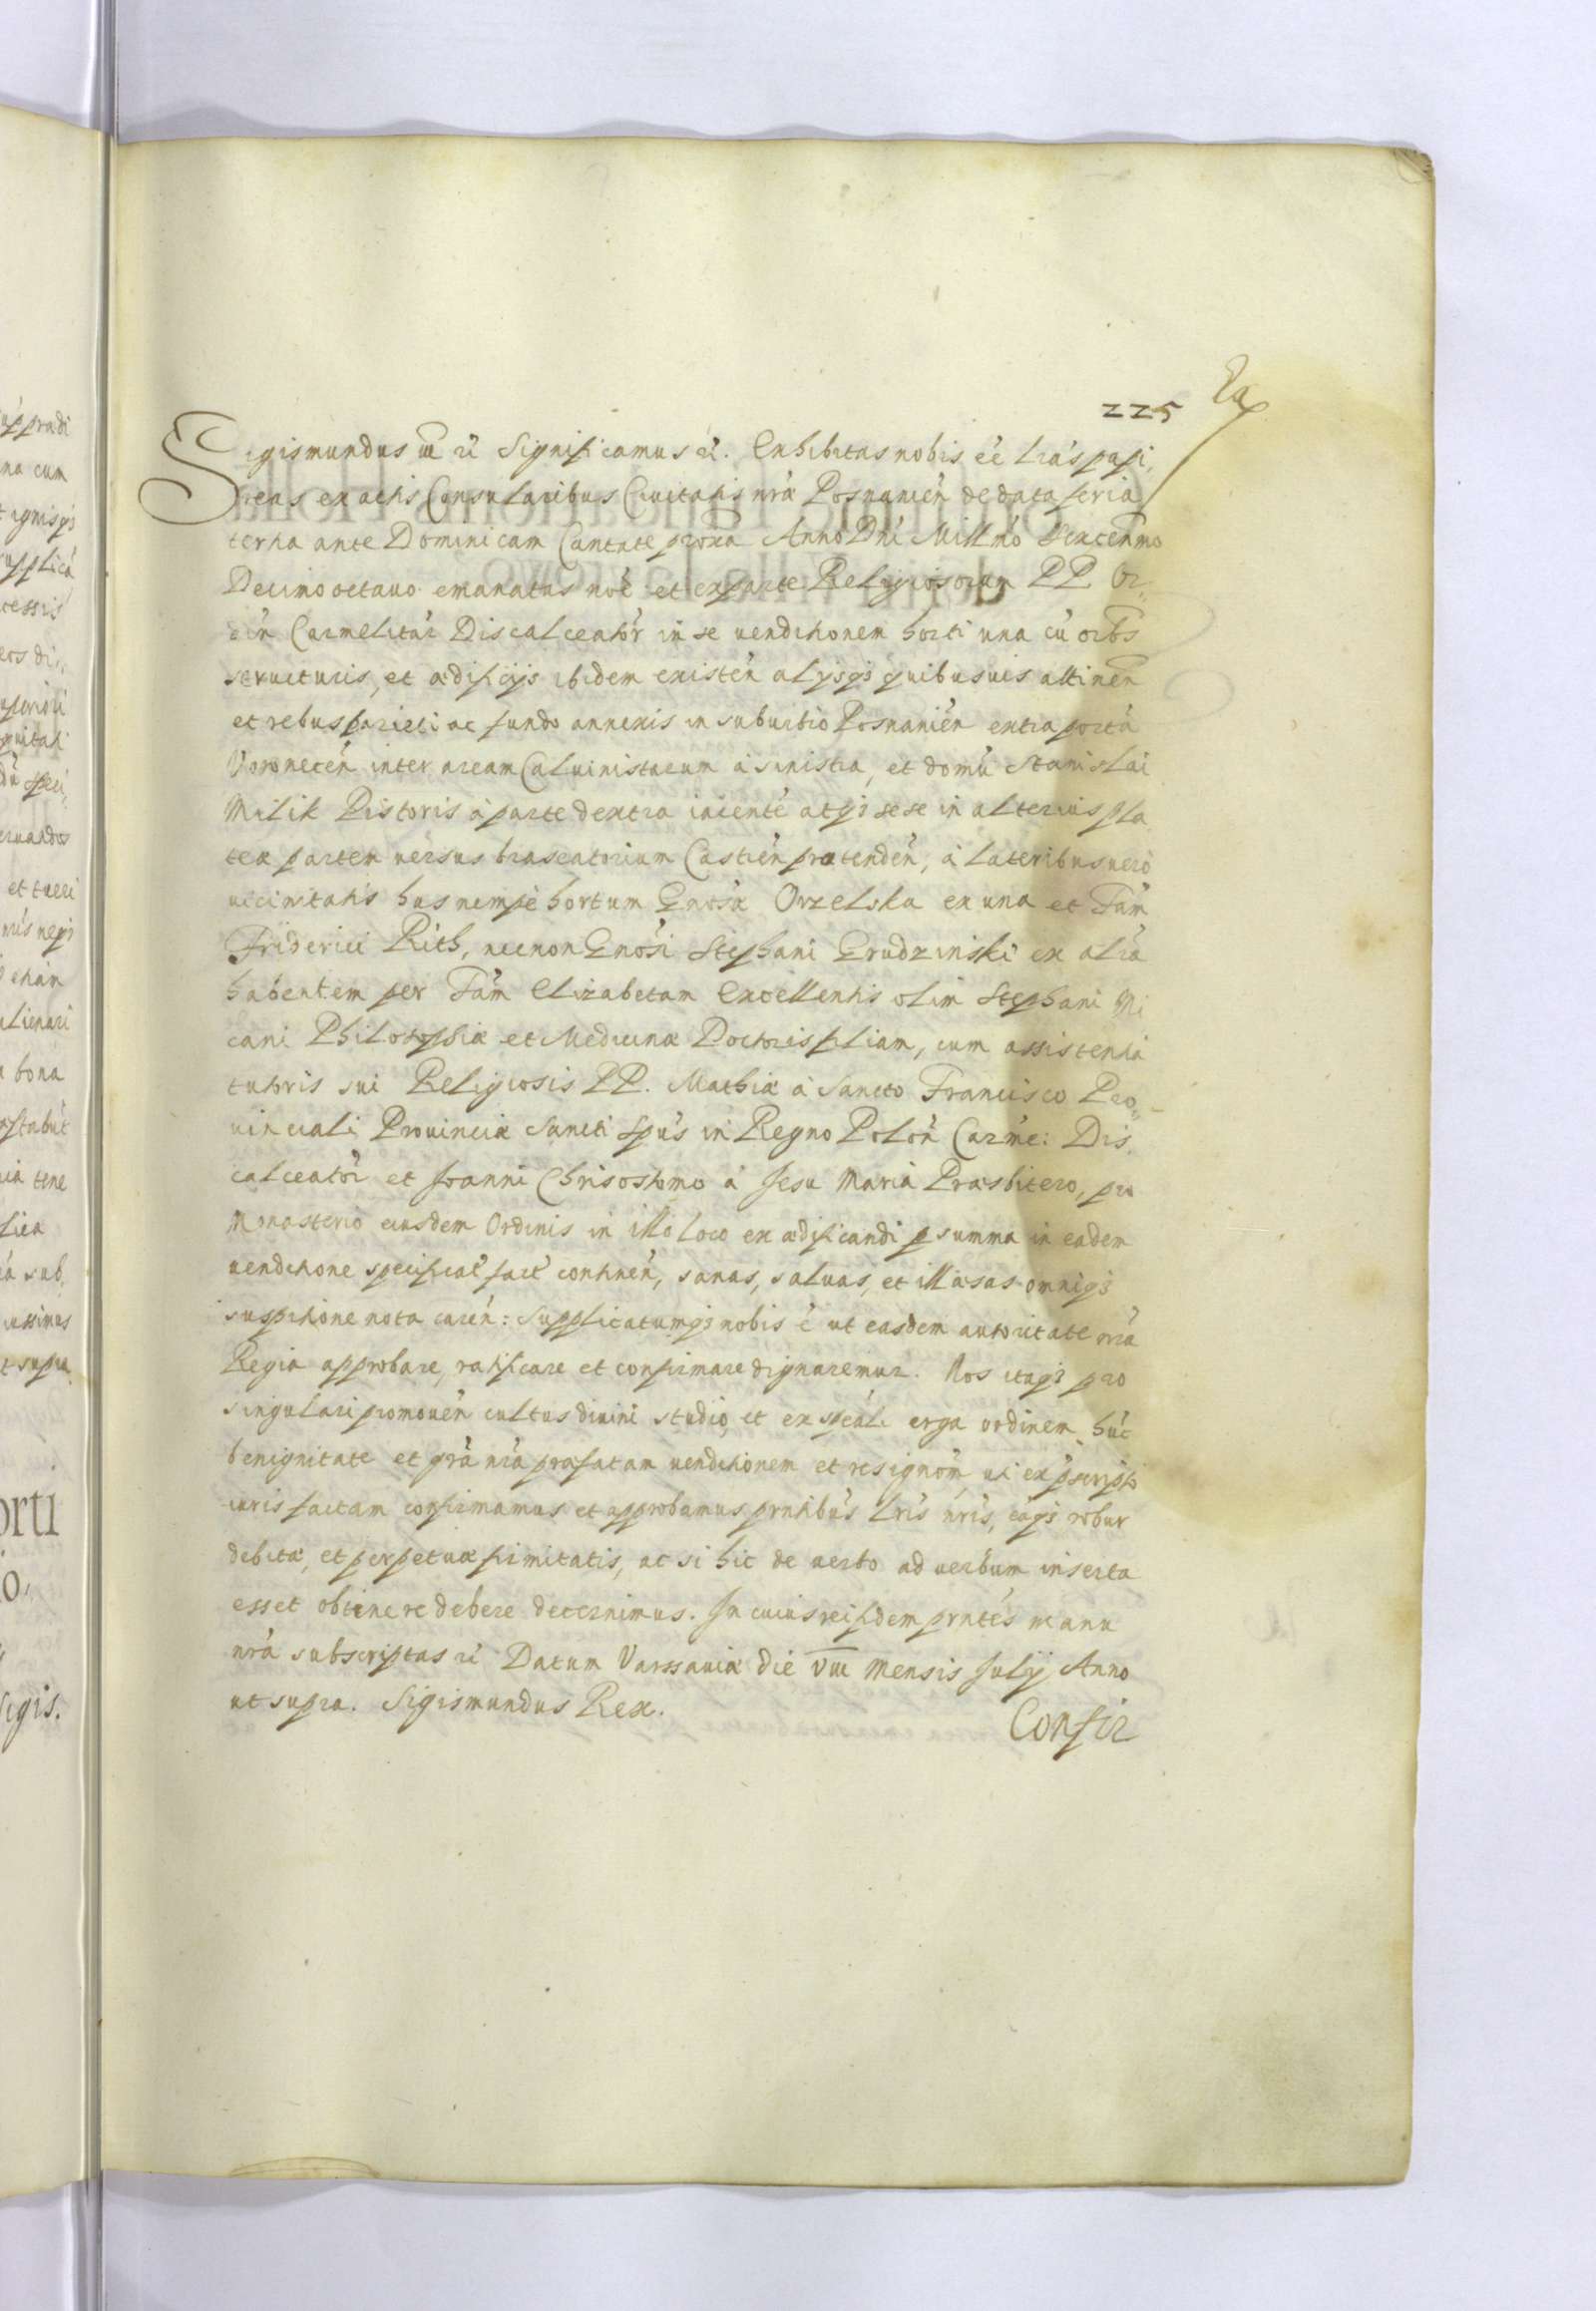 225
Sigismundus III etc Significamus etc. Exhibitas nobis ee lras papi,
reas ex actis Consularibus Civitatis nrae Posnanien de data feria
tertia ante Dominicam Cantate proxa Anno Dni Millmo Sexcenmo
Decimo octavo emanatas noe et ex parte Religiosorum PP. Or=
din Carmelitar Discalceator in se venditionem horti una cu oibs
structuris, et aedificijs ibidem existen alijsqz quibusuis attinen
et rebus parieti ac fundo annexis in suburbio Posnanien extra porta
Vronecen inter aream Caluinistarum a sinistra, et domu Stanislai
Milik Pistoris a parte dextra iacente atqz sese in alterius pla
teae partem versus braseatorium Castren protenden, a lateribus vero
vicinitatis has nempe hortum Gnosae Orzelska ex una et Fam
Friderici Rith, necnon Gnosi Stephani Grudzinski ex alia
habentem per Fam Elizabetam Excellentis olim Stephani Mi
cani Philosophiae et Medicinae Doctoris filiam, cum assistentia
tutoris sui Religiosis PP. Mathiae a Sancto Francisco Pro=
uinciali Prouinciae Sancti Spus in Regno Polon Carme: Dis.
calceator et Joanni Chrisostomo a Jesu Maria Praesbitero, pro
Monasterio eiusdem Ordinis in illo loco ex aedificandi p summa in eadem
venditione specificat fact continen, sanas, saluas, et illaesas omniqz
suspitione nota caren: Supplicatumqz nobis e ut easdem autoritate nra
Regia approbare, ratificare et confirmare dignaremur. Nos itaqz pro
singulari promouen cultus diuini studio, et ex speali erga ordinem hui
benignitate et gra nra praefatam venditionem et resignom uti ex pscripto
iuris factam confirmamus et approbamus prntibus lris nris, eaqz robur
debitae, et perpetuae firmitatis, ac si hic de verbo ad verbum inserta
esset obtinere debere decernimus. In cuius rei fidem prntes manu
nra subscriptas etc Datum Varssaviae die VIII Mensis Julij Anno
ut supra. Sigismundus Rex.
Confir